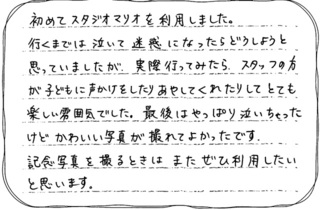 初めてスタジオマリオを利用しました。
行くまでは泣いて迷惑になったらどうしようと
思っていましたが、実際行ってみたら、スタッフの方
が子どもに声かけをしたりあやしてくれたりしてとても
楽しい雰囲気でした。最後はやっぱり泣いちゃった
けどかわいい写真が撮れてよかったです。
記念写真を撮るときはまたぜひ利用したい
と思います。